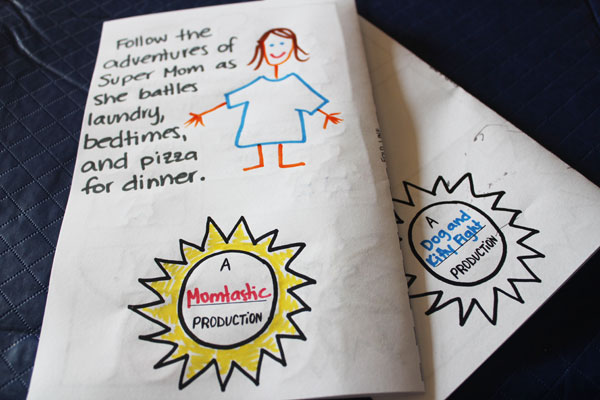 Follow the
adventures of
Super Mom as
she battles
laundry,
bedtimes,
and pizza
for dinner.
A
Momtastic
PRODUCTION
A
Dog and
Kitty Fight
PRODUCTION